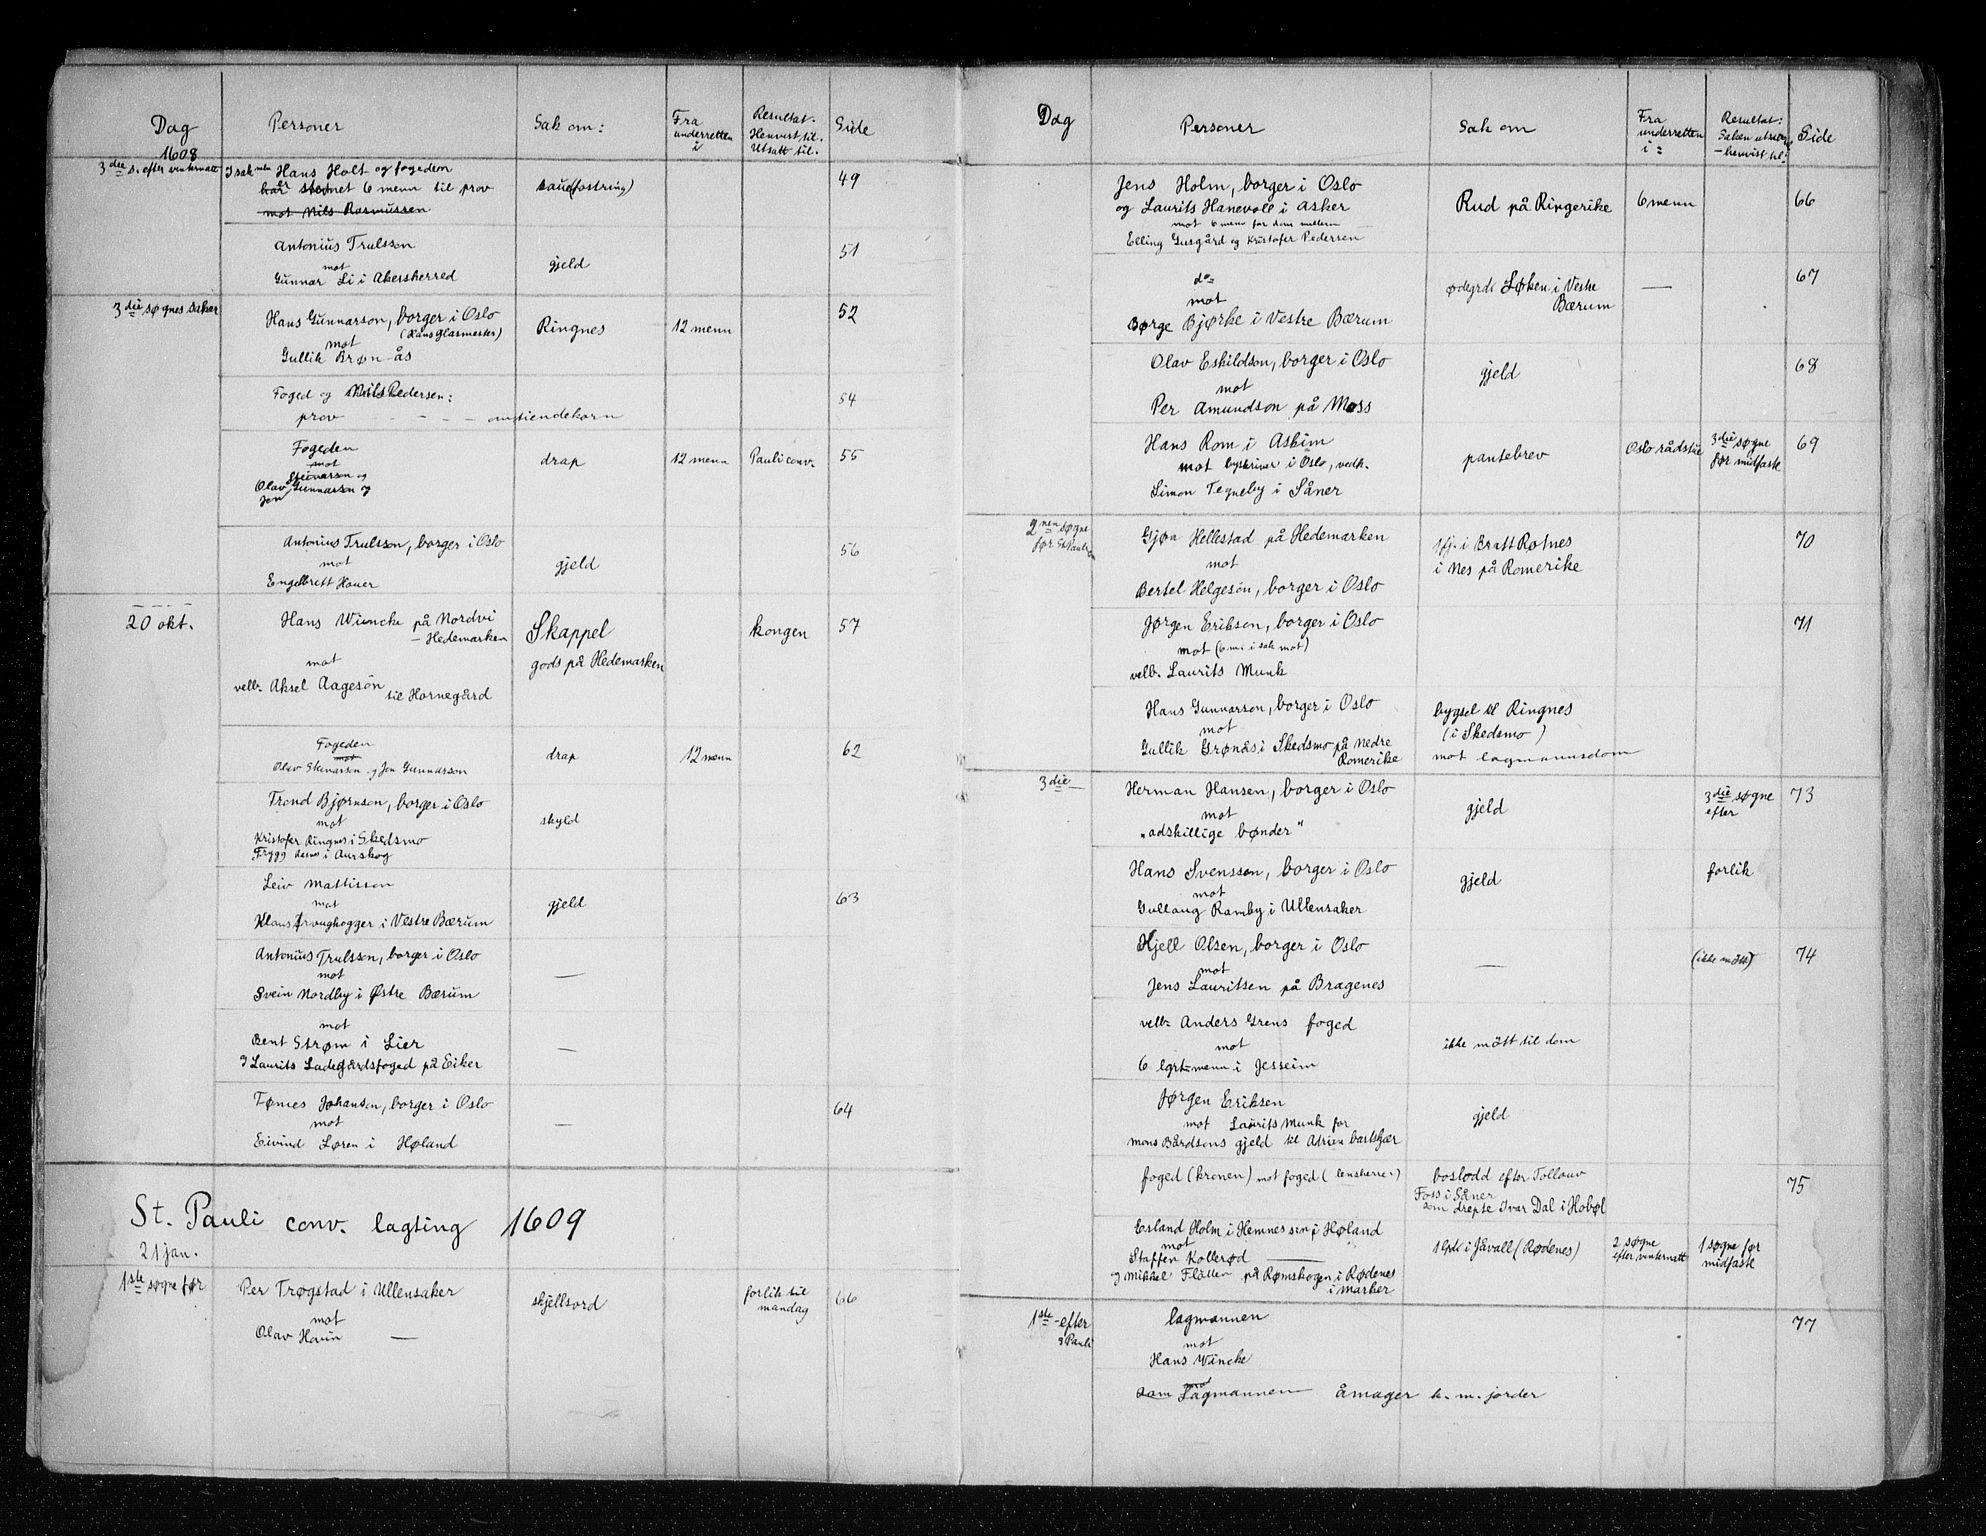 Dag
1608
Personer
Sak om:
Fra
underretten
i
Resultat.
Henvist til.
Utsatt til.
Side
3die s. efter vinternatt
I sak mlm Hans Holt og fogeden
har stevnet 6 menn til prov
mot Nils Rasmussen
(fostring)
49
Antonius Trulsson
mot
Gunnar Li i Akersherred
gjeld
51
3die søgnes saker
Hans Gunnarson, borger i Oslo
(Hans Glasmester)
mot
Gullik Brøn-ås
Ringnes
12 menn
52
Foged og Nils Pedersen:
prov - - - - om tiendekorn
54
Fogeden
mot
Olav Steinarson og
Jon Gunnarson og
drap
12 menn
Pauli conv.
55
Antonius Trulsson, borger i Oslo
mot
Engelbrett Haver
gjeld
56
20 okt.
Hans Wincke på Nordvi
- Hedemarken
mot
velb. Aksel Aagesøn
til Hornegård
Skappel
gods på Hedemarken
kongen
57
Fogeden
mot
Olav Steinarson og Jon Gunnarson
drap
12 menn
62
Trond Bjørnson, borger i Oslo
mot
Kristofer Ringnes i Skedsmo
Trygg i Aurskog
skyld
Leiv Mattisson
mot
Klaus Troughogger i Vestre Bærum
gjeld
63
Antonius Trulsson, borger i Oslo
mot
Svein Nordby i Østre Bærum
—
mot
Bent Strøm i Lier
og Laurits Ladegårdsfoged på Eiker
—
Tømes Johansen, borger i Oslo
mot
Eivind Løren i Høland
—
64
St. Pauli conv. lagting 1609
21 jan.
1ste søgne før
Per Trøgstad i Ullensaker
mot
Olav Hovin —
skjellsord
forlik til
mandag
66
Dag
Personer
Sak om
Fra
underretten
i:
Resultat:
Saken utsatt
- henvist til:
Side
Jens Holm, borger i Oslo
og Laurits Hanevoll i Asker
mot 6 menn for dom mellem
Elling Gusgård og Kristofer Pedersen
Rud på Ringerike
6 menn
66
do
mot
Børge Bjørke i Vestre Bærum
ødegrd. Løken i Vestre
Bærum
—
67
Olav Eskildson, borger i Oslo
mot
Per Amundson på Moss
gjeld
68
Hans Rom i Askim
mot byskriver i Oslo, vedk.
Simon Tegneby i Såner
pantebrev
Oslo rådstue
3die søgne
før midfaste
69
2nen søgne
før St Pauli
Gjøa Hellestad på Hedemarken
mot
Bertel Helgesøn, borger i Oslo
i Bratt Rotnes
i Nes på Romerike
70
Jørgen Eriksen, borger i Oslo
mot (6 m. i sak mot)
velb. Laurits Munk
71
Hans Gunnarson, borger i Oslo
mot
Gullik Grønås i Skedsmo på Nedre
Romerike
bygsel til Ringnes
(i Skedsmo)
mot lagmannsdom
3die -
Herman Hansen, borger i Oslo
mot
"adskillige bønder"
gjeld
3die søgne
efter
73
Hans Svensson, borger i Oslo
mot
Gullaug Ramby i Ullensaker
gjeld
forlik
Kjell Olsen, borger i Oslo
mot
Jens Lauritsen på Bragenes
—
(ikke møtt)
74
velb. Anders Grens foged
mot
6 lgrt.menn i Jesseim
ikke møtt til dom
Jørgen Eriksen
mot Laurits Munk for
Mons Bårdsens gjeld til Adrien bartskjær
gjeld
foged (kronen) mot foged (lensherren)
boslodd efter Tollouv
Foss i Såner
som drepte Ivar Dal i Hobøl
75
Esland Holm i Hemnes sn i Høland
mot
Staffen Kollerød —
og Mikkel Flaten på Rømskogen i Rødenes
i Marker
i Jåvall (Rødenes)
2 søgne
efter vinternatt
1 søgne før
midfaste
1ste - efter
S Pauli
lagmannen
mot
Hans Wincke
77
mot
som Lagmannen åmager k. m. jorder